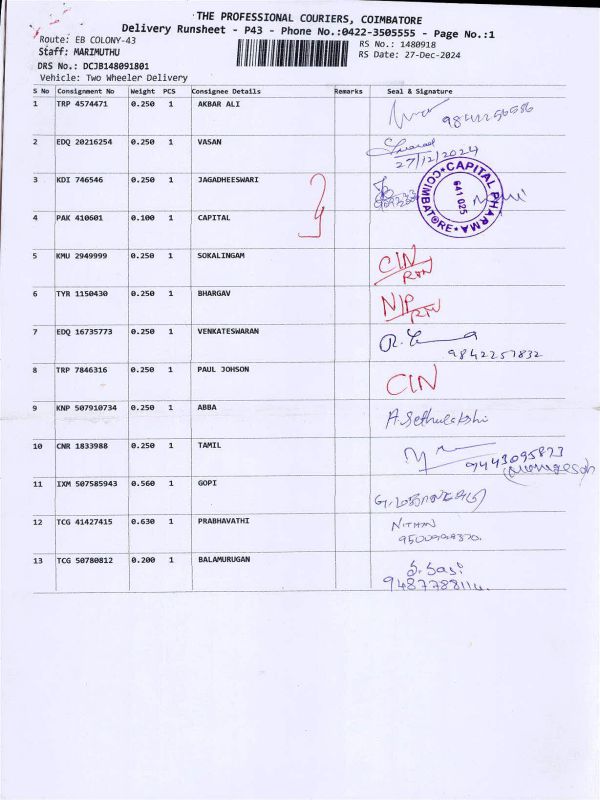 THE PROFESSIONAL COURIERS, COIMBATORE
Delivery Runsheet - P43 - Phone No.:0422-3505555 - Page No.:1
Route: EB COLONY-43
RS No.: 1480918
Staff: MARIMUTHU
RS Date: 27-Dec-2024
DRS No.: DCJB148091801
Vehicle: Two Wheeler Delivery
S No Consignment No Weight PCS Consignee Details Remarks Seal & Signature
1 TRP 4574471 0.250 1 AKBAR ALI
2 EDQ 20216254 0.250 1 VASAN
27/12/2024
3 KDI 746546 0.250 1 JAGADHEESWARI
CAPITAL PHARMA
COIMBATORE
641 025
4 PAK 410601 0.100 1 CAPITAL
5 KMU 2949999 0.250 1 SOKALINGAM CIN
RTN
6 TYR 1150430 0.250 1 BHARGAV N/P
RTN
7 EDQ 16735773 0.250 1 VENKATESWARAN
9842257832
8 TRP 7846316 0.250 1 PAUL JOHSON CIN
9 KNP 507910734 0.250 1 ABBA A.Sethulakshi
10 CNR 1833988 0.250 1 TAMIL 9443095873
11 IXM 507585943 0.560 1 GOPI
12 TCG 41427415 0.630 1 PRABHAVATHI NITHIN
13 TCG 50780812 0.200 1 BALAMURUGAN S. Sasi
9487788114.